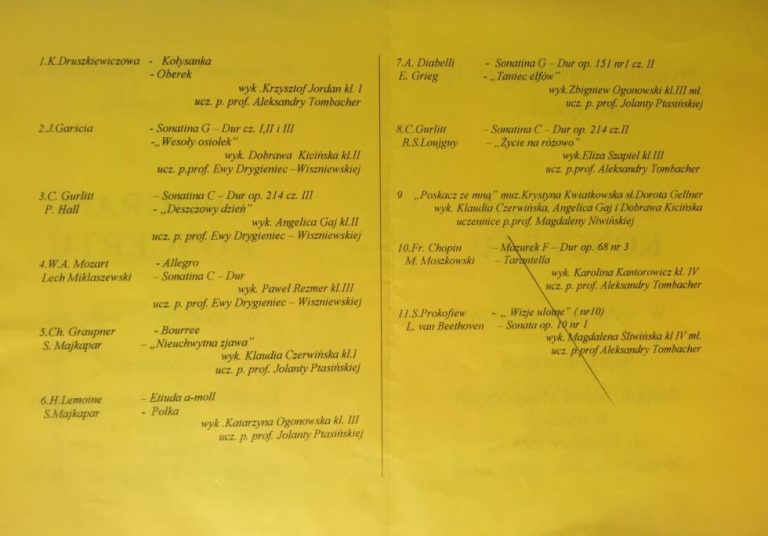 1.K.Druszkiewiczowa - Kołysanka
- Oberek
wyk .Krzysztof Jordan kl. I
ucz. p. prof. Aleksandry Tombacher
2.J.Garścia - Sonatina G – Dur cz. I,II i III
-„Wesoły osiołek”
wyk. Dobrawa Kicińska kl.II
ucz. p.prof. Ewy Drygieniec –Wiszniewskiej
3.C. Gurlitt – Sonatina C – Dur op. 214 cz. III
P. Hall - „Deszczowy dzień”
wyk. Angelica Gaj kl.II
ucz. p. prof. Ewy Drygieniec – Wiszniewskiej
4.W.A. Mozart - Allegro
Lech Miklaszewski – Sonatina C – Dur
wyk. Paweł Rezmer kl.III
ucz. p. prof. Ewy Drygieniec – Wiszniewskiej
5.Ch. Graupner - Bourree
S. Majkapar – „Nieuchwytna zjawa”
wyk. Klaudia Czerwińska kl.I
ucz. p. prof. Jolanty Ptasińskiej
6.H.Lemoine – Etiuda a-moll
S.Majkapar - Polka
wyk .Katarzyna Ogonowska kl. III
ucz. p. prof. Jolanty Ptasińskiej
7.A. Diabelli - Sonatina G – Dur op. 151 nr1 cz. II
E. Grieg - „Taniec elfów”
wyk.Zbigniew Ogonowski kl.III mł.
ucz. p. prof. Jolanty Ptasińskiej
8.C.Gurlitt – Sonatina C – Dur op. 214 cz.II
R.S.Loujguy – „Życie na różowo”
wyk.Eliza Szapiel kl.III
ucz. p.prof. Aleksandry Tombacher
9 „Poskacz ze mną” muz.Krystyna Kwiatkowska sł.Dorota Gellner
wyk. Klaudia Czerwińska, Angelica Gaj i Dobrawa Kicińska
uczennice p.prof. Magdaleny Niwińskiej
10.Fr. Chopin – Mazurek F – Dur op. 68 nr 3
M. Moszkowski – Tarantella
wyk. Karolina Kantorowicz kl. IV
ucz. p. prof. Aleksandry Tombacher
11.S.Prokofiew - „ Wizje ulotne” ( nr10)
L. van Beethoven – Sonata op. 10 nr 1
wyk. Magdalena Śliwińska kl IV mł.
ucz. p.prof Aleksandry Tombacher